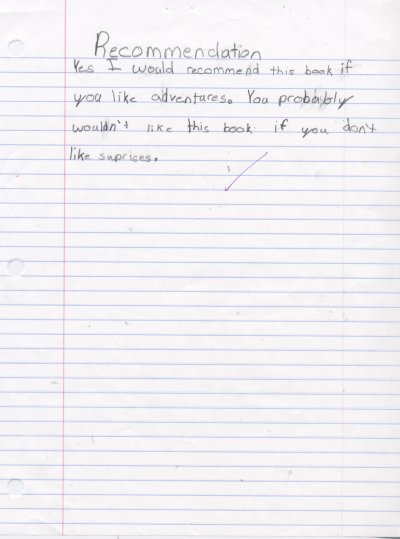 Recommendation
Yes I would recommend this book if
you like adventures. You probably
wouldn't like this book if you don't
like suprices.